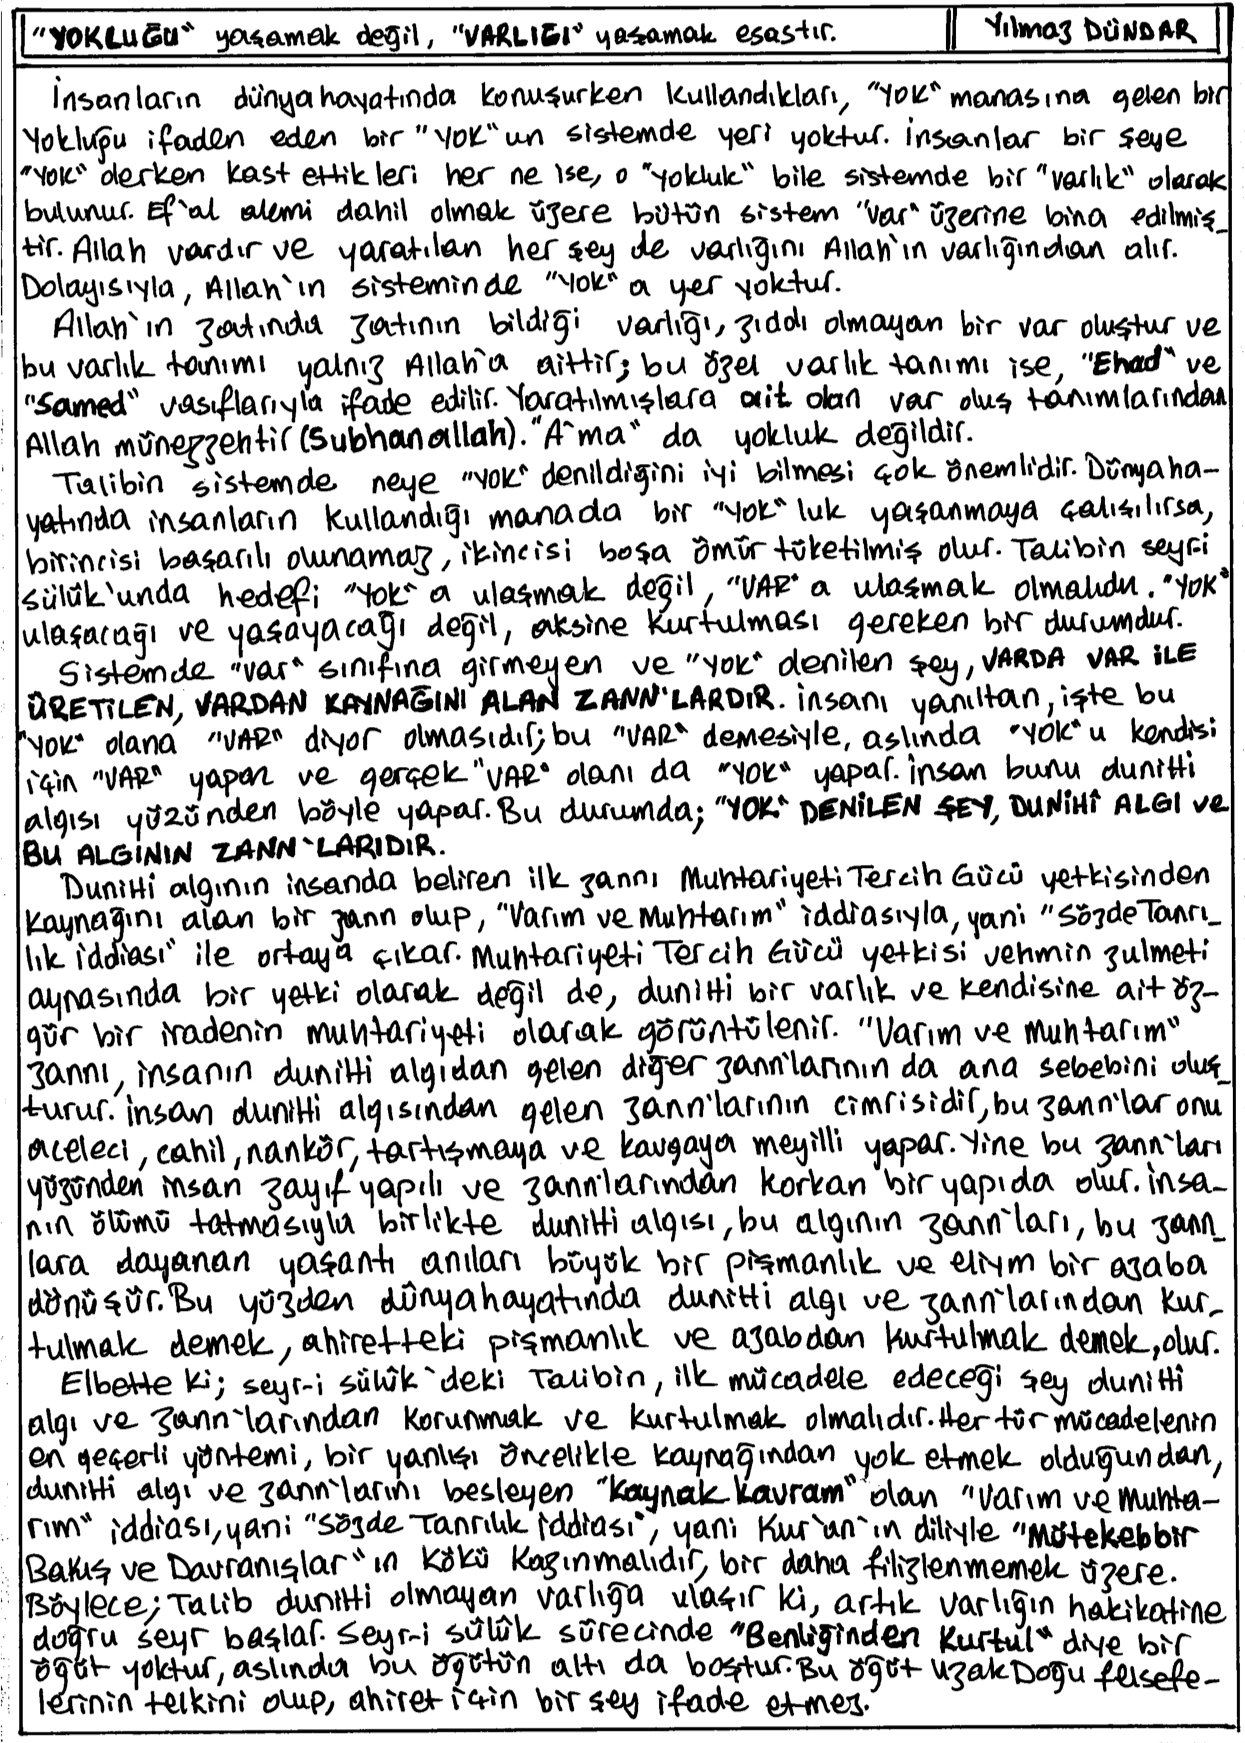 "YOKLUĞU" yaşamak değil, "VARLIĞI" yaşamak esastır. Yılmaz DÜNDAR
İnsanların dünya hayatında konuşurken kullandıkları, "YOK" manasına gelen bir
Yokluğu ifaden eden bir "YOK"un sistemde yeri yoktur. İnsanlar bir şeye
"YOK" derken kast ettikleri her ne ise, o "yokluk" bile sistemde bir "varlık" olarak
bulunur. Ef'al alemi dahil olmak üzere bütün sistem "Var" üzerine bina edilmiş_
tir. Allah vardır ve yaratılan her şey de varlığını Allah'ın varlığından alır.
Dolayısıyla, Allah'ın sisteminde "YOK"a yer yoktur.
Allah'ın zatında zatının bildiği varlığı, zıddı olmayan bir var oluştur ve
bu varlık tanımı yalnız Allah'a aittir; bu özel varlık tanımı ise, "Ehad" ve
"Samed" vasıflarıyla ifade edilir. Yaratılmışlara ait olan var oluş tanımlarından
Allah münezzehtir (Subhanallah). "A'ma" da yokluk değildir.
Talibin sistemde neye "YOK" denildiğini iyi bilmesi çok önemlidir. Dünya ha-
yatında insanların kullandığı manada bir "YOK"luk yaşanmaya çalışılırsa,
birincisi başarılı olunamaz, ikincisi boşa ömür tüketilmiş olur. Talibin seyri
sülûk'unda hedefi "YOK"a ulaşmak değil, "VAR"a ulaşmak olmalıdır. "YOK"
ulaşacağı ve yaşayacağı değil, aksine kurtulması gereken bir durumdur.
Sistemde "var" sınıfına girmeyen ve "YOK" denilen şey, VARDA VAR İLE
ÜRETİLEN, VARDAN KAYNAĞINI ALAN ZANN'LARDIR. İnsanı yanıltan, işte bu
"YOK" olana "VAR" diyor olmasıdır; bu "VAR" demesiyle, aslında "YOK"u kendisi
için "VAR" yapar ve gerçek "VAR" olanı da "YOK" yapar. İnsan bunu duniHi
algısı yüzünden böyle yapar. Bu durumda; "YOK" DENİLEN ŞEY, DUNİHİ ALGI ve
BU ALGININ ZANN'LARIDIR.
DuniHi algının insanda beliren ilk zannı Muhtariyeti Tercih Gücü yetkisinden
kaynağını alan bir zann olup, "Varım ve Muhtarım" iddiasıyla, yani "Sözde Tanrı_
lık iddiası" ile ortaya çıkar. Muhtariyeti Tercih Gücü yetkisi vehmin zulmeti
aynasında bir yetki olarak değil de, duniHi bir varlık ve kendisine ait öz-
gür bir iradenin muhtariyeti olarak görüntülenir. "Varım ve Muhtarım"
zannı, insanın duniHi algıdan gelen diğer zann'larının da ana sebebini oluş_
turur. İnsan duniHi algısından gelen zann'larının cimrisidir, bu zann'lar onu
aceleci, cahil, nankör, tartışmaya ve kavgaya meyilli yapar. Yine bu zann'ları
yüzünden insan zayıf yapılı ve zann'larından korkan bir yapıda olur. İnsa-
nın ölümü tatmasıyla birlikte duniHi algısı, bu algının zann'ları, bu zann_
lara dayanan yaşantı anıları büyük bir pişmanlık ve eliym bir azaba
dönüşür. Bu yüzden dünya hayatında duniHi algı ve zann'larından kur_
tulmak demek, ahiretteki pişmanlık ve azabdan kurtulmak demek, olur.
Elbette ki; seyr-i sülûk'deki Talibin, ilk mücadele edeceği şey duniHi
algı ve zann'larından korunmak ve kurtulmak olmalıdır. Her tür mücadelenin
en geçerli yöntemi, bir yanlışı öncelikle kaynağından yok etmek olduğundan,
duniHi algı ve zann'larını besleyen "Kaynak Kavram" olan "Varım ve Muhta-
rım" iddiası, yani "Sözde Tanrılık iddiası", yani Kur'an'ın diliyle "Mütekebbir
Bakış ve Davranışlar"ın kökü kazınmalıdır, bir daha filizlenmemek üzere.
Böylece; Talib duniHi olmayan varlığa ulaşır ki, artık varlığın hakikatine
doğru seyr başlar. Seyr-i sülûk sürecinde "Benliğinden Kurtul" diye bir
öğüt yoktur, aslında bu öğütün altı da boştur. Bu öğüt Uzak Doğu felsefe-
lerinin telkini olup, ahiret için bir şey ifade etmez.